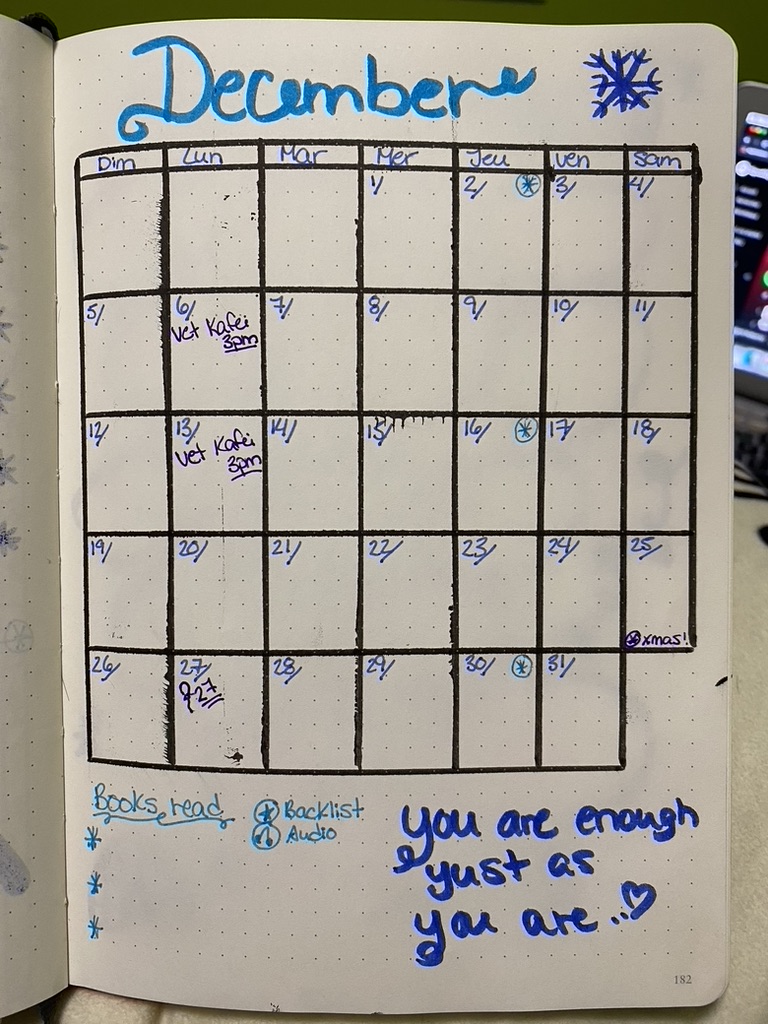 December
Dim Lun Mar Mer Jeu Ven Sam
1/ 2/ 3/ 4/
5/ 6/ 7/ 8/ 9/ 10/ 11/
Vet Kafei
3pm
12/ 13/ 14/ 15/ 16/ 17/ 18/
Vet Kafei
3pm
19/ 20/ 21/ 22/ 23/ 24/ 25/
xmas!
26/ 27/ 28/ 29/ 30/ 31/
27
Books read
Backlist
Audio
you are enough
yust as
you are..
182